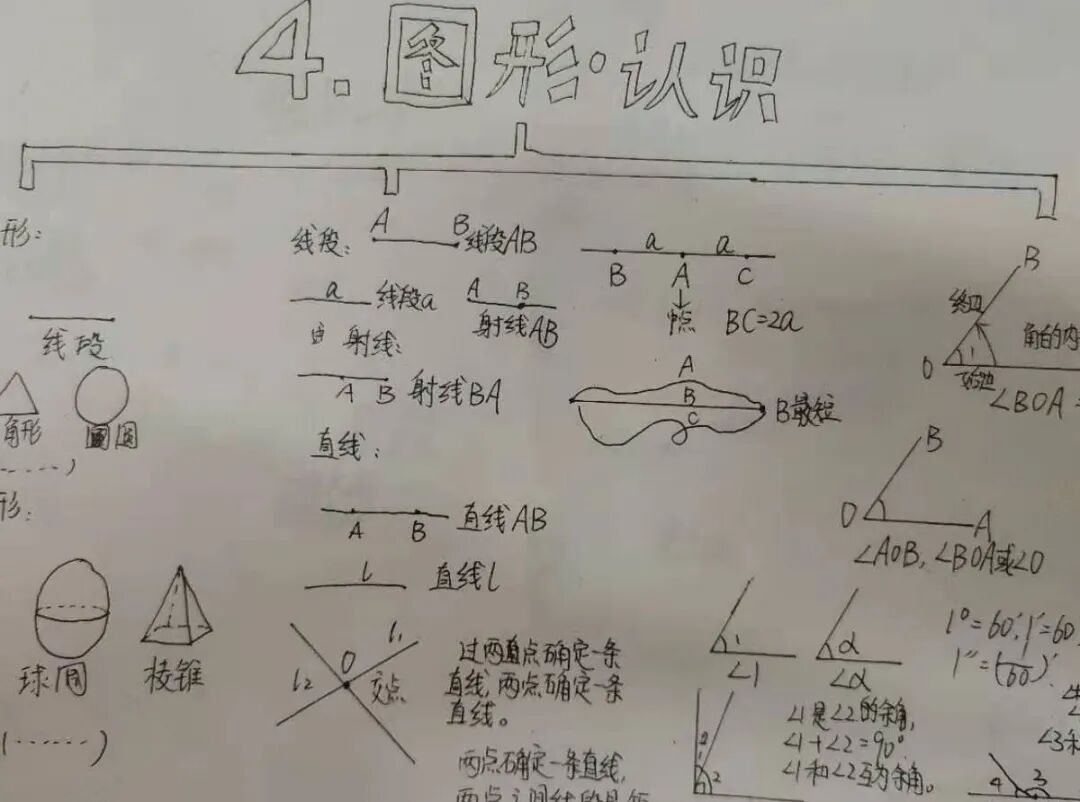 4.图形·认识
形:
线段
角形
圆
(......)
形:
球
棱锥
(......)
线段:
A B
线段AB
a
线段a
A B
射线AB
射线:
A B 射线BA
直线:
A B
直线AB
l 直线l
l₁
l₂
O
交点
过两点确定一条
直线,两点确定一条
直线。
两点确定一条直线,
a a
B A C
中点
BC=2a
A
B
C
B最短
B
终边
O
1
始边
角的内
∠BOA=
B
O A
∠AOB,∠BOA或∠O
1
∠1
α
∠α
1°=60′,1′=60
1″=(1/60)′
2
1
2
∠1是∠2的余角,
∠1+∠2=90°
∠1和∠2互为余角。
∠3和
4 3